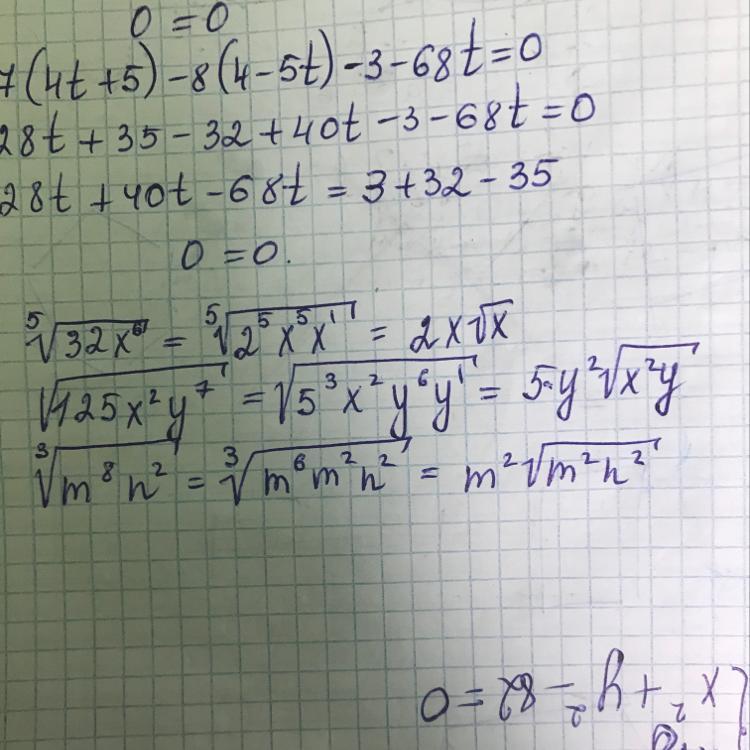 0 = 0
7(4t + 5) - 8(4 - 5t) - 3 - 68t = 0
28t + 35 - 32 + 40t - 3 - 68t = 0
28t + 40t - 68t = 3 + 32 - 35
0 = 0.
⁵√(32x⁶) = ⁵√(2⁵x⁵x¹) = 2x√x
√(125x²y⁷) = √(5³x²y⁶y¹) = 5·y²√(x²y)
³√(m⁸n²) = ³√(m⁶m²n²) = m²√(m²n²)
x² + y² - 82 = 0